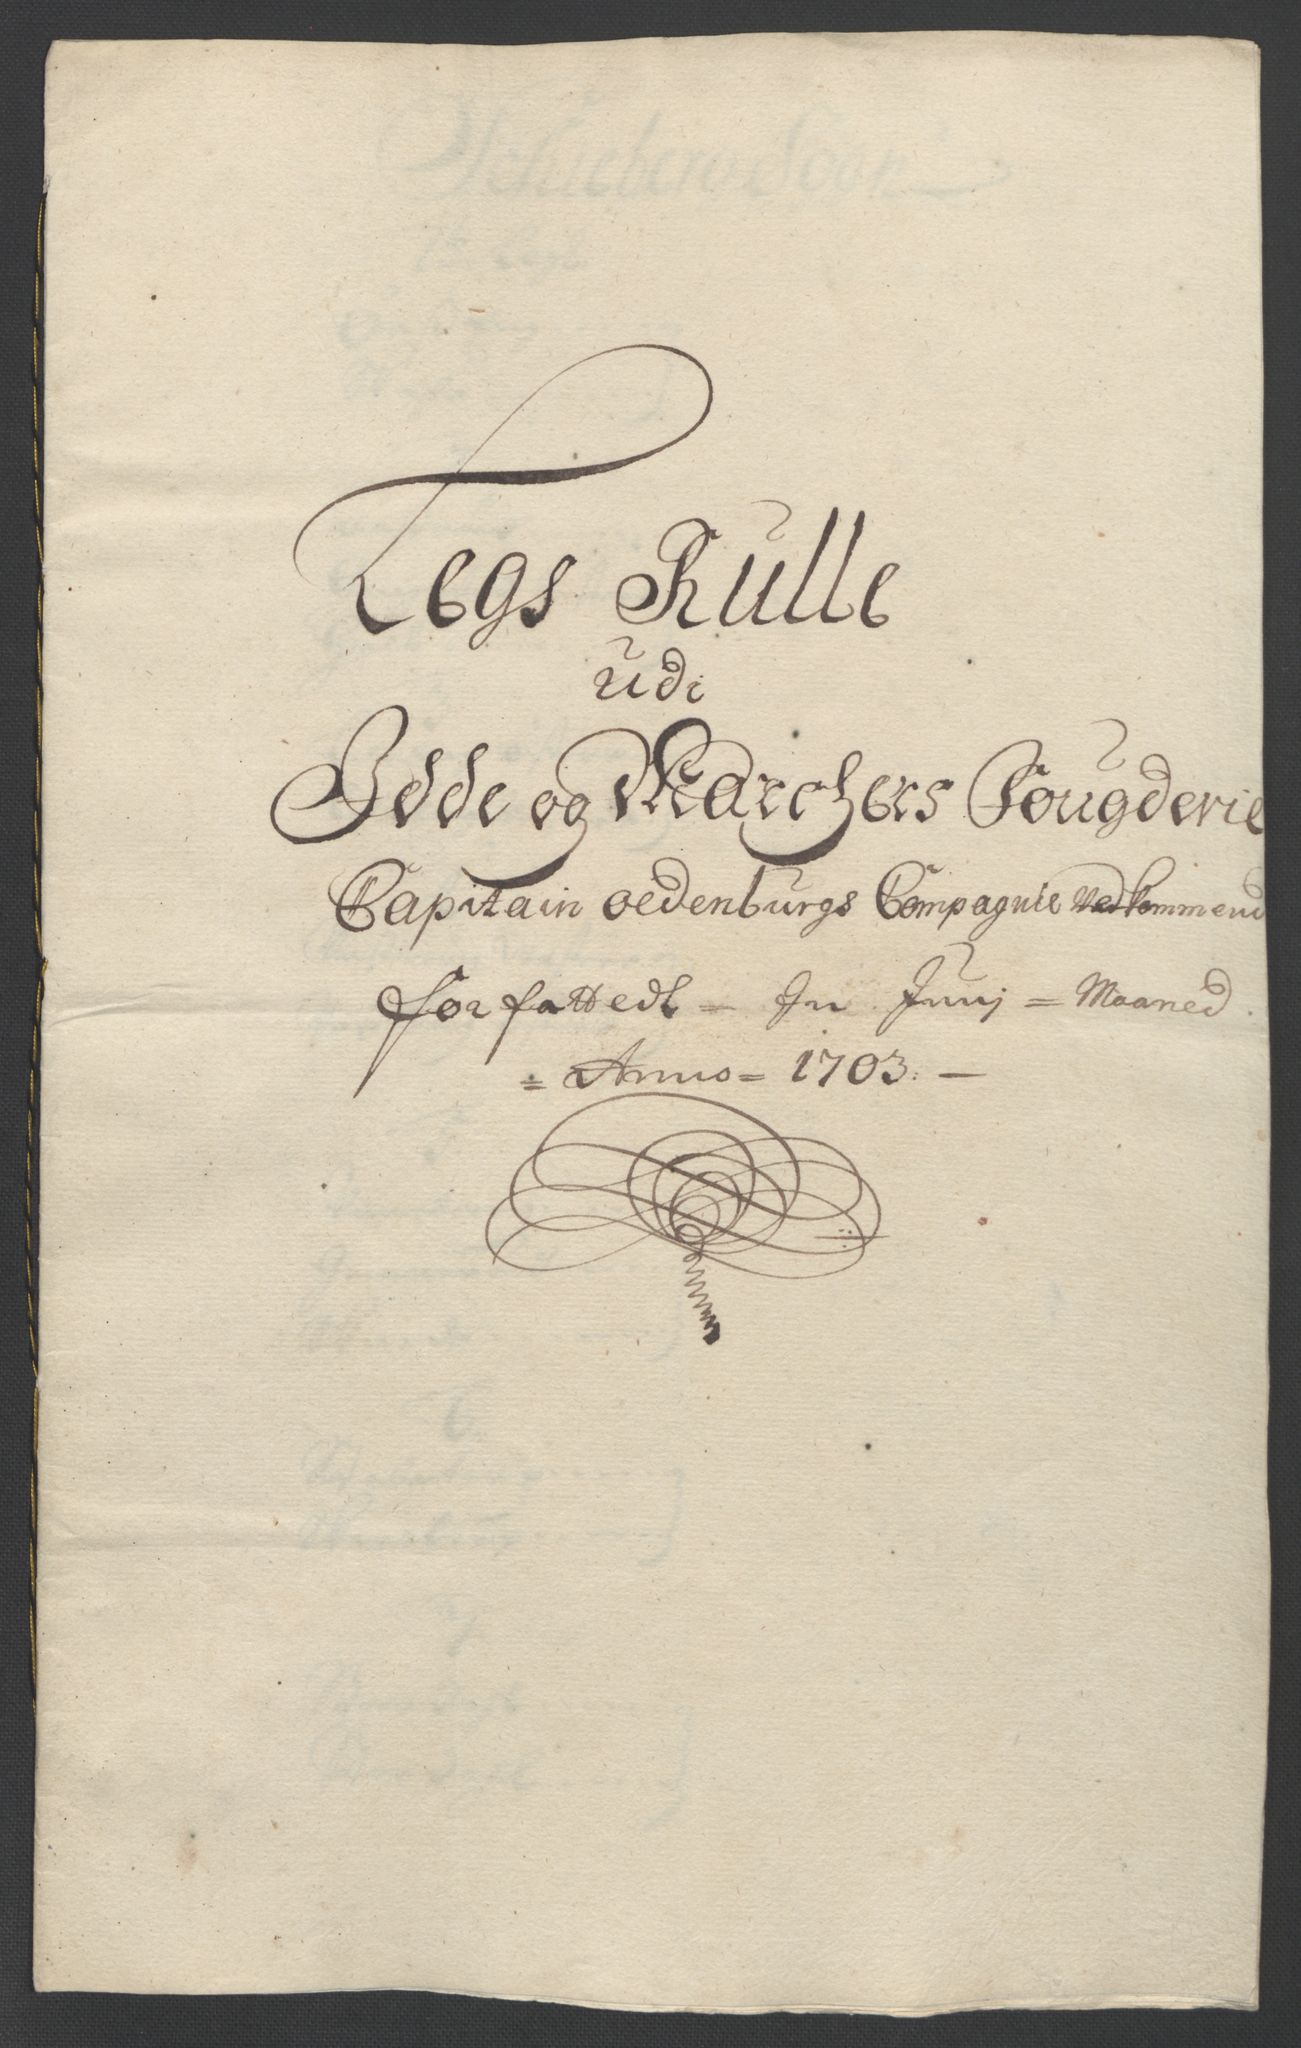 Legs Rulle
udi
Idde og Marchers Fougderie
Capitain oedenburgs Compagnie Vedkommend
forfattedt = In Junj = Maaned
= Anno = 1703. —